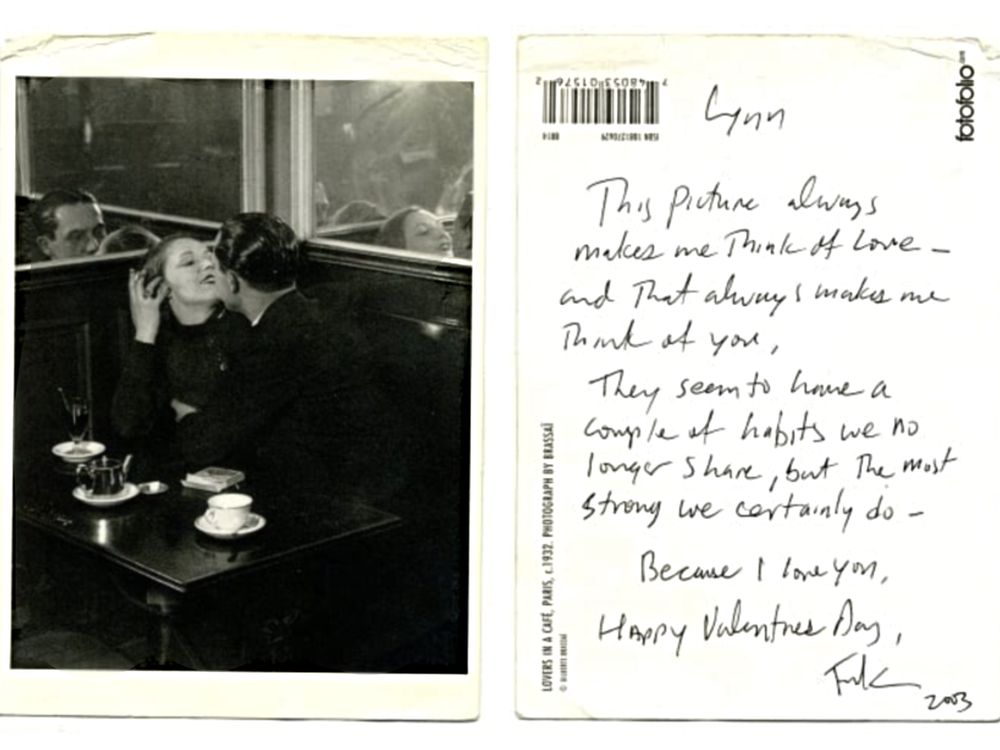 7 48053 01576 2
8814
fotofolio
Lynn
This picture always
makes me Think of Love –
and That always makes me
Think of you,
They seem to have a
couple of habits we no
longer share, but The most
strong we certainly do –
Because I love you,
Happy Valentines Day,
2003
LOVERS IN A CAFÉ, PARIS, c.1932. PHOTOGRAPH BY BRASSAÏ
© GILBERTE BRASSAÏ